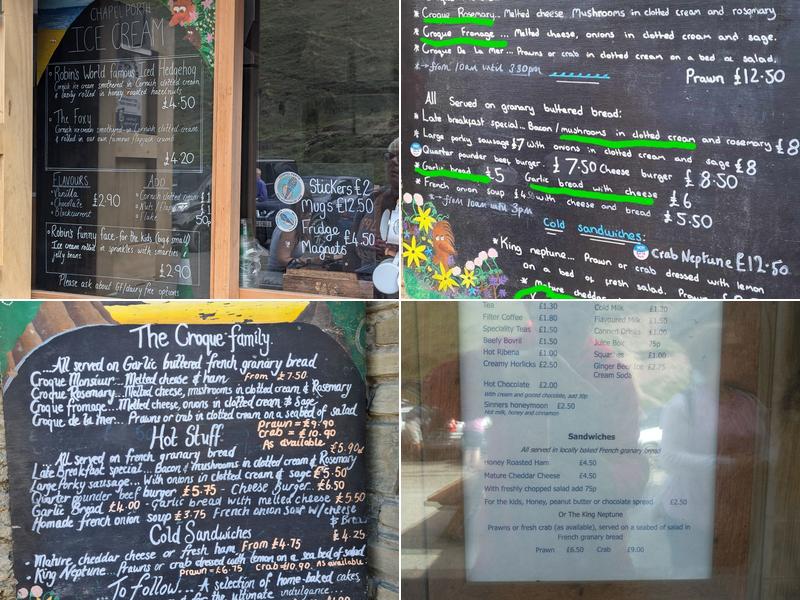 CHAPEL PORTH
ICE CREAM
• Robin's World famous Iced Hedgehog
Cornish ice cream smothered in Cornish clotted cream
& lastly rolled in honey roasted hazelnuts
£4.50
• The Foxy
Cornish ice cream smothered in Cornish clotted cream
& rolled in our own famous flapjack crumb
£4.20
FLAVOURS
• Vanilla
• Chocolate
• Blackcurrant
£2.90
ADD
• Cornish clotted cream
• Nuts
• Flake
• Robin's funny face - for the kids (big & small)
Ice cream rolled in sprinkles with smarties
jelly beans
£2.90
Please ask about GF/dairy free options
Stickers £2
Mugs £12.50
Fridge
Magnets £4.50
* Croque Rosemary.. Melted cheese Mushrooms in clotted cream and rosemary
* Croque Fromage ... Melted cheese, onions in clotted cream and sage.
* Croque De La Mer... Prawns or crab in clotted cream on a bed of salad.
from 10am until 3:30pm
Prawn £12.50
All Served on granary buttered bread:
* Late breakfast special... Bacon / mushrooms in clotted cream and rosemary £8
* Large porky sausage £7 With onions in clotted cream and sage £8
Quarter pounder beef burger. £7.50 Cheese burger £8.50
* Garlic bread £5 Garlic bread with cheese £6
* French onion soup £4.50 with cheese and bread £5.50
from 10am until 3pm
Cold sandwiches:
Crab Neptune £12.50
* King neptune... Prawn or crab dressed with lemon
on a bed of fresh salad. Prawn
* Mature cheddar
The Croque family
...All served on Garlic buttered french granary bread
Croque Monsieur... Melted cheese & ham From £7.50
Croque Rosemary... Melted cheese, mushrooms in clotted cream & Rosemary
Croque fromage... Melted cheese, onions in clotted cream & Sage
Croque de la mer... Prawns or crab in clotted cream on a seabed of salad
Prawn = £9.90
Crab = £10.90
As available
Hot Stuff
All served on french granary bread
£5.90
Late breakfast special... Bacon / mushrooms in clotted cream & Rosemary
Large Porky sausage... With onions in clotted cream & sage £5.50
Quarter pounder beef burger £5.75 - Cheese Burger... £6.50
Garlic Bread £4.00 - Garlic bread with melted cheese £5.50
Homade french onion soup £3.75 French onion soup w/ cheese
& Bread
£4.25
Cold Sandwiches
- Mature cheddar cheese or fresh ham From £4.75
- King Neptune... Prawns or crab dressed with lemon on a sea bed of salad
Prawn = £6.75 Crab = £10.90. As available
To follow... A selection of home-baked cakes
for the ultimate indulgence...
Tea £1.30
Filter Coffee £1.80
Speciality Teas £1.50
Beefy Bovril £1.50
Hot Ribena £1.00
Creamy Horlicks £2.50
Hot Chocolate £2.00
With cream and grated chocolate, add 30p
Sinners honeymoon £2.50
Hot milk, honey and cinnamon
Cold Milk £1.20
Flavoured Milk £1.50
Canned Drinks £1.00
Juice Box 75p
Squashes £1.00
Ginger Beer Ice £2.75
Cream Soda
Sandwiches
All served in locally baked French granary bread
Honey Roasted Ham £4.50
Mature Cheddar Cheese £4.50
With freshly chopped salad add 75p
For the kids, Honey, peanut butter or chocolate spread £2.50
Or The King Neptune
Prawns or fresh crab (as available), served on a seabed of salad in
French granary bread
Prawn £6.50 Crab £9.00